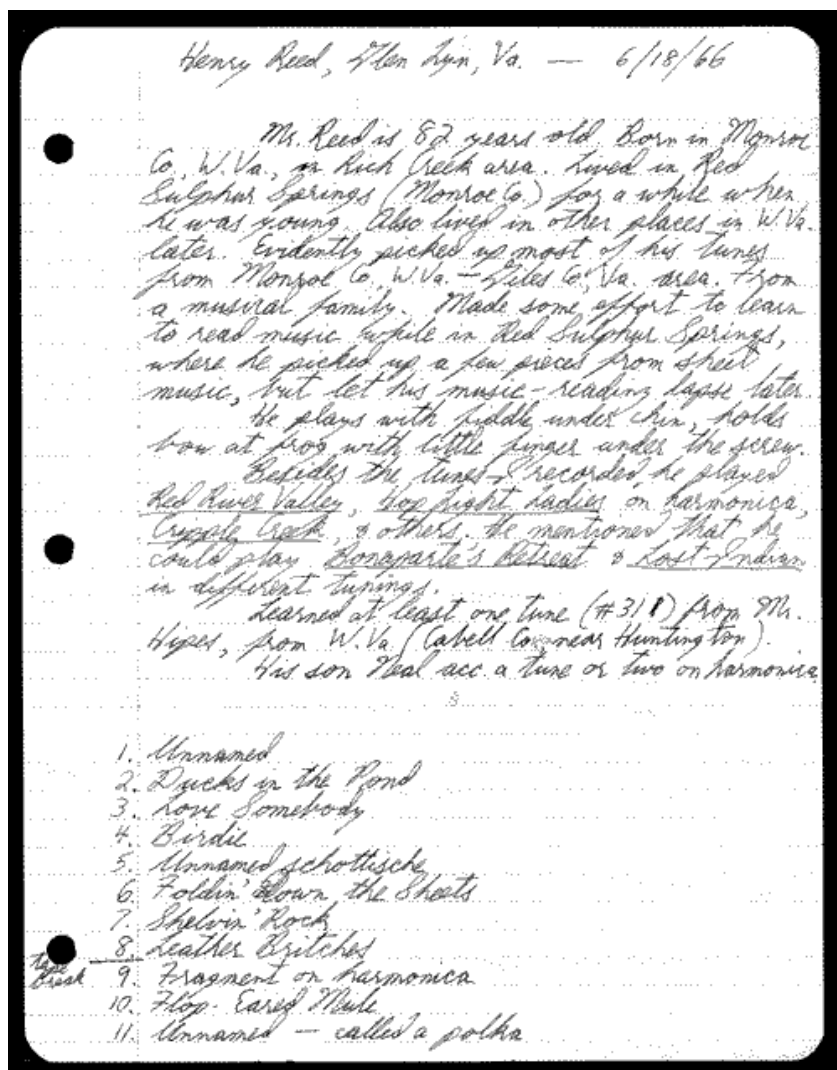 Henry Reed, Glen Lyn, Va. — 6/18/66
Mr. Reed is 82 years old. Born in Monroe
Co., W.Va., in Rich Creek area. Lived in Red
Sulphur Springs (Monroe Co.) for a while when
he was young. Also lived in other places in W.Va.
later. Evidently picked up most of his tunes
from Monroe Co., W.Va. – Giles Co., Va. area. From
a musical family. Made some effort to learn
to read music while in Red Sulphur Springs,
where he picked up a few pieces from sheet
music, but let his music-reading lapse later.
He plays with fiddle under chin, holds
bow at frog with little finger under the screw.
Besides the tunes I recorded, he played
Red River Valley, Hop Light Ladies on harmonica,
Cripple Creek, & others. He mentioned that he
could play Bonaparte's Retreat & Lost Indian
in different tunings.
Learned at least one tune (#311) from Mr.
Hipes, from W.Va. (Cabell Co., near Huntington).
His son Neal acc. a tune or two on harmonica
1. Unnamed
2. Ducks in the Pond
3. Love Somebody
4. Birdie
5. Unnamed schottische
6. Foldin' Down the Sheets
7. Shelvin' Rock
8. Leather Britches
tape break
9. Fragment on harmonica
10. Flop-Eared Mule
11. Unnamed — called a polka